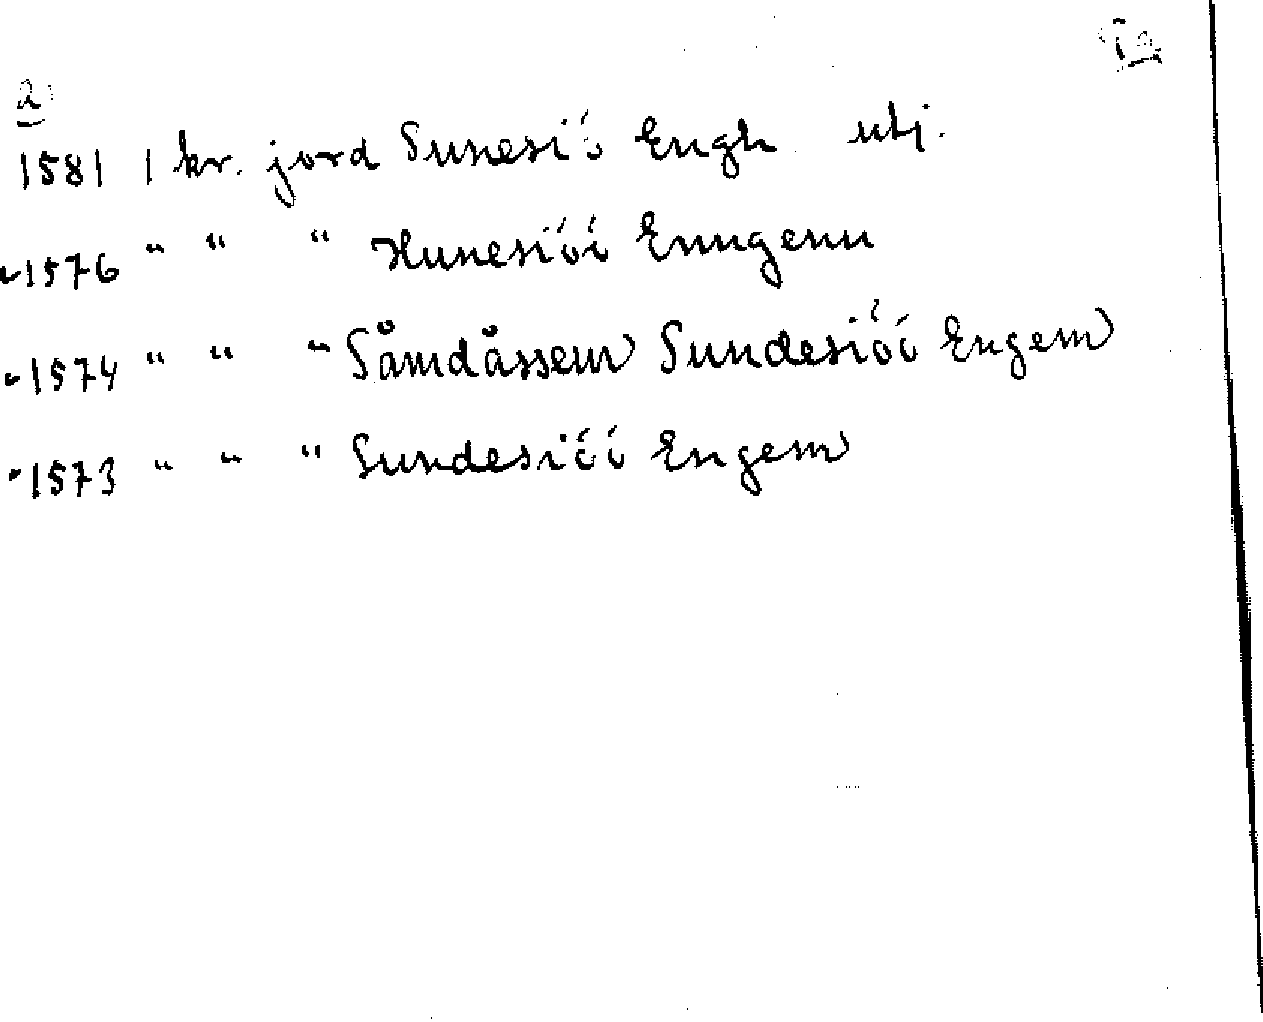 a
1581 1 kr. jord Sunesiö Engh utj.
1576 " " " Hunesiöö Enngenn
1574 " " " Såmdåssenn Sundesiöö Engem
1573 " " " Sundesiöö Engem